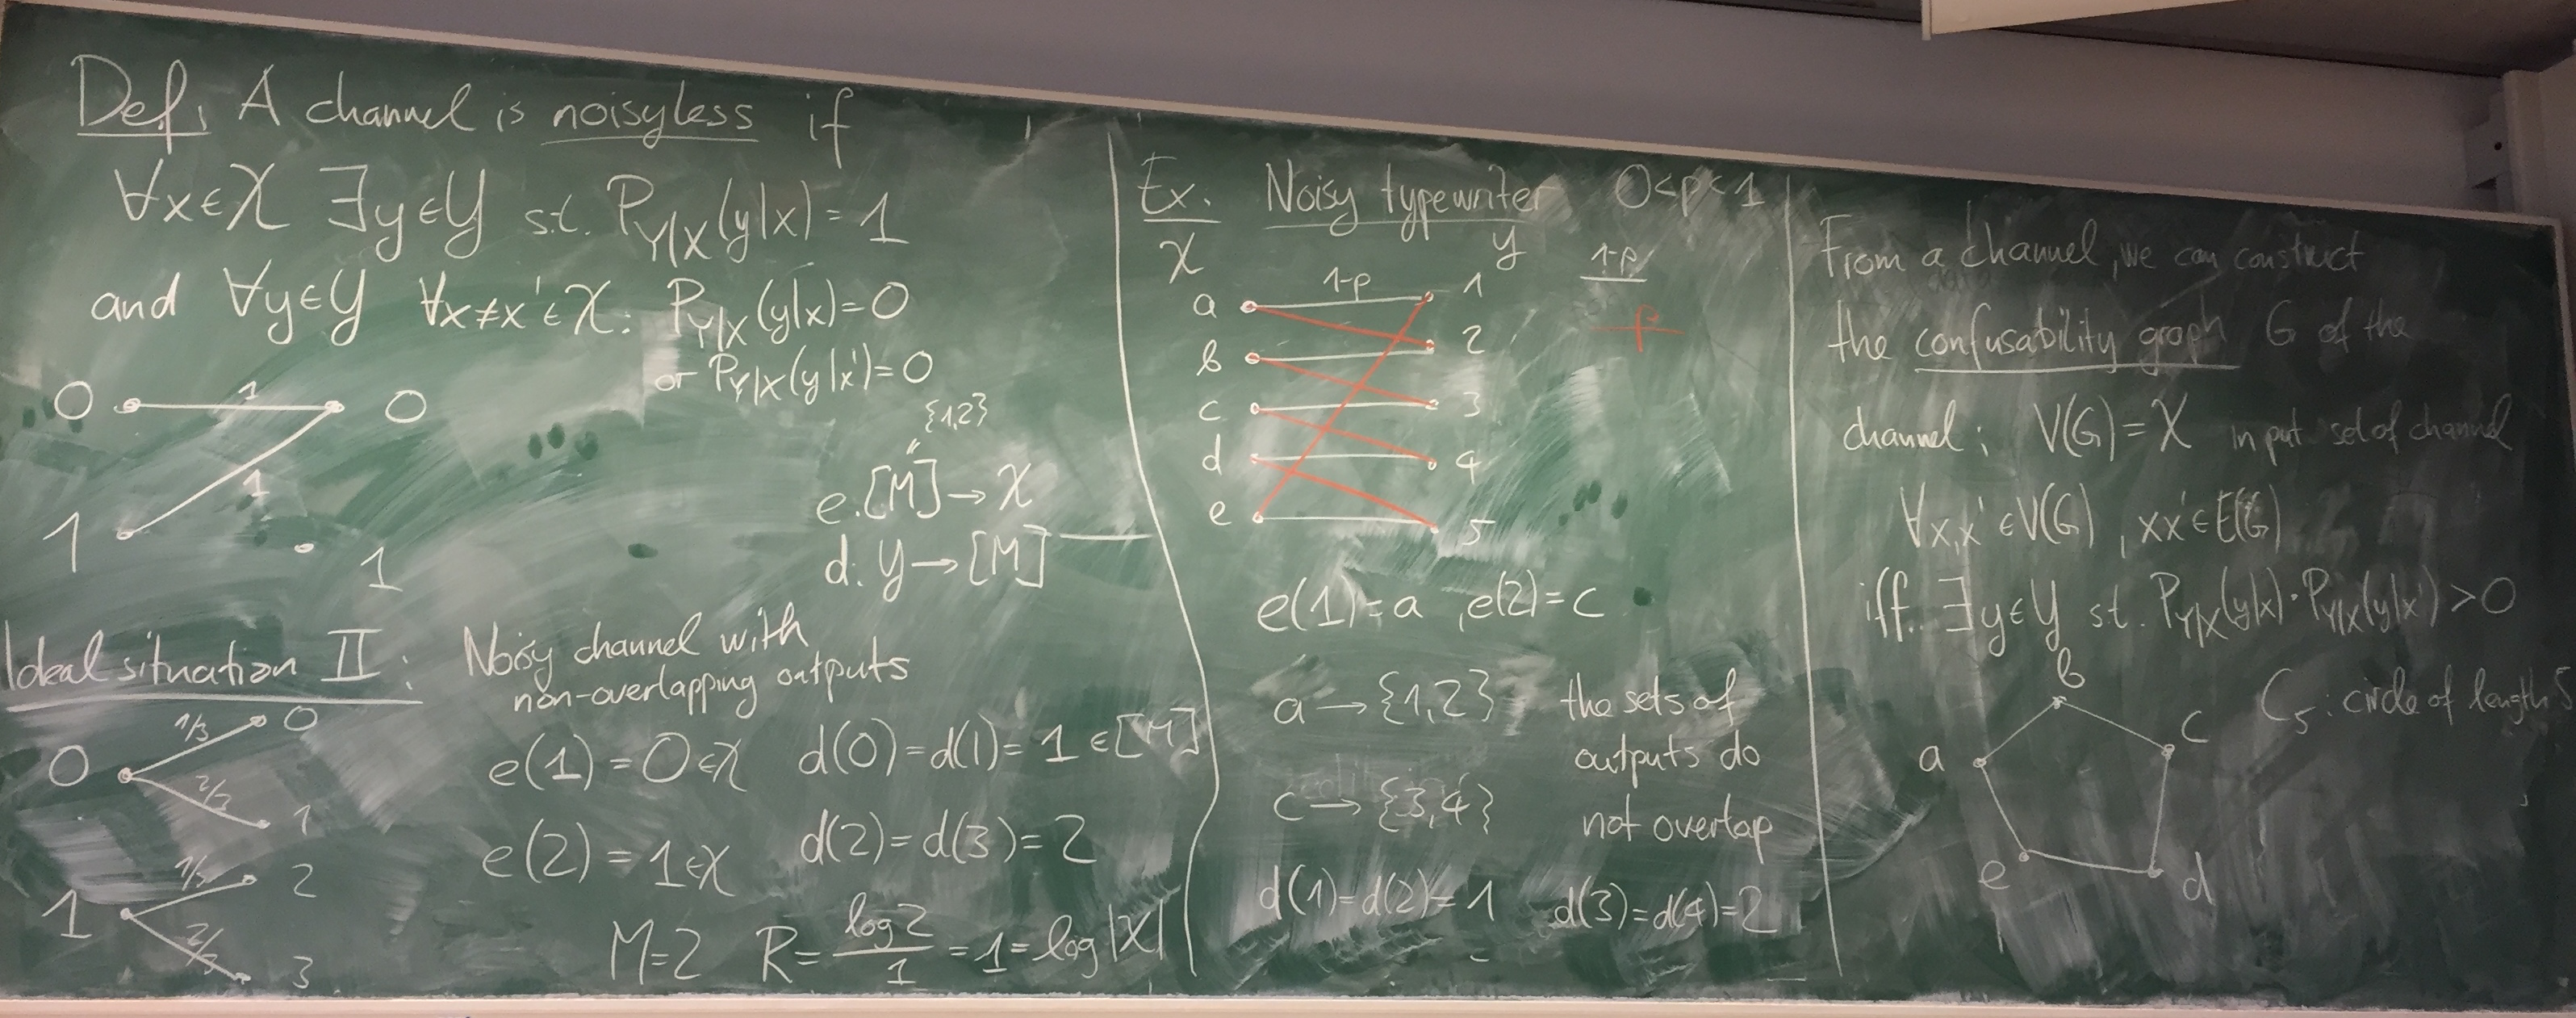 Def. A channel is noisyless if
∀x∈X ∃y∈Y s.t. P_{Y|X}(y|x) = 1
and ∀y∈Y ∀x≠x'∈X: P_{Y|X}(y|x)=0
or P_{Y|X}(y|x')=0
0 1 0
1 1 1
{1,2}
"
e: [M] → X
d: Y → [M]
Ideal situation II: Noisy channel with
non-overlapping outputs
0 1/3 0
2/3 1
1 1/3 2
2/3 3
e(1) = 0∈X d(0)=d(1)= 1 ∈[M]
e(2) = 1∈X d(2)=d(3)=2
M=2 R= log2/1 =1= log|X|
Ex. Noisy typewriter 0<p<1
X Y 1-p
a 1-p 1
p
b 2
c 3
d 4
e 5
e(1)=a , e(2)=c
a → {1,2} the sets of
outputs do
c → {3,4} not overlap
d(1)=d(2)=1 d(3)=d(4)=2
From a channel, we can construct
the confusability graph G of the
channel: V(G)=X input set of channel
∀x,x'∈V(G), xx'∈E(G)
iff. ∃y∈Y s.t. P_{Y|X}(y|x)·P_{Y|X}(y|x')>0
b
C₅: circle of length 5
a c
e d